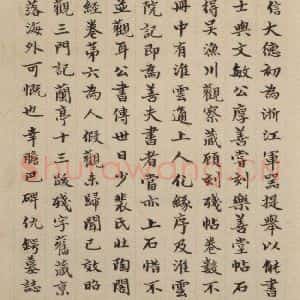 信大德初為浙江軍器提舉以能書
士與文敏公厚善嘗刻樂善堂帖石
得吳漁川觀察藏顧刻殘帖卷數不
冊中有淮雲通上人化緣序及淮雲
院記即為善夫書者當亦上石惜不
並觀耳公書傳世日少裴氏壯陶閣
經卷第六為人假觀未歸聞已散咍
觀三門記蘭亭十三跋殘字舊藏京
落海外可慨也幸膽巴碑仇鍔墓誌